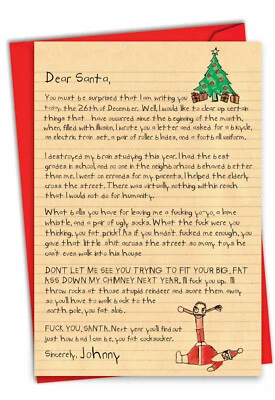 Dear Santa,
You must be surprised that I am writing you
today, the 26th of December. Well, I would like to clear up certain
things that have occurred since the beginning of the month,
when, filled with illusion, I wrote you a letter and asked for a bicycle,
an electric train set, a pair of roller blades, and a football uniform.
I destroyed my brain studying this year. I had the best
grades in school, and no one in the neighborhood behaved better
than me. I went on errands for my parents, I helped the elderly
cross the street. There was virtually nothing within reach
that I would not do for humanity.
What balls you have for leaving me a fucking yo-yo, a lame
whistle, and a pair of ugly socks. What the fuck were you
thinking, you fat prick? As if you hadn't fucked me enough, you
gave that little shit across the street so many toys he
can't even walk into his house
DON'T LET ME SEE YOU TRYING TO FIT YOUR BIG, FAT
ASS DOWN MY CHIMNEY NEXT YEAR. I'll fuck you up. I'll
throw rocks at those stupid reindeer and scare them away
so you'll have to walk back to the
north pole, you fat slob.
FUCK YOU, SANTA. Next year you'll find out
just how bad I can be, you fat cocksucker.
Sincerely, Johnny